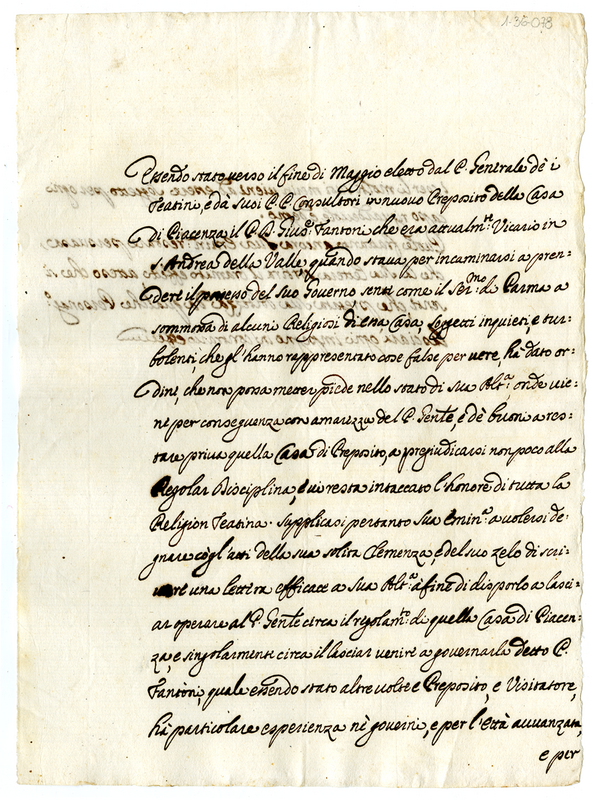 1-36-078
Essendo stato verso il fine di Maggio eletto dal P. Gentrale de i
Teatini, e da suoi P.P. Consultori in nuovo Preposito della Casa
di Piacenza il P. D. Fantoni, che era attualm.te Vicario in
S. Andrea della Valle, quando stava per incaminarsi a pren=
dere il possesso del suo Governo sentì come il Ser.mo di Parma a
sommossa di alcuni Religiosi di ena Casa soggetti inquieti, e tur=
bolenti, che gl'hanno rappresentato cose false per vere, hà dato or=
dini, che non possa metter piede nello stato di Sua Alt.a onde vie=
ne per conseguenza con amarezza del P. Gen̄te, e dè buoni a res=
tare priva quella Casa di Preposito, a pregiudicarsi non poco alla
Regolar Disciplina, e vi resta intaccato l'honore di tutta la
Religion Teatina. Supplicasi pertanto Sua Emin.a a volersi de=
gnare cogl'atti della sua solita Clemenza, e del suo zelo di scri=
vere una lettera efficace a Sua Alt.a a fine di disporlo a lasci=
ar operare al P. Gen̄te circa il regolam.to di quella Casa di Piacen=
za, e singolarmente circa il lasciar venire a governarla detto P.
Fantoni, quale essendo stato altre volte e Preposito, e Visitatore,
hà particolare esperienza nè governi, e per l'età avvanzata,
e per